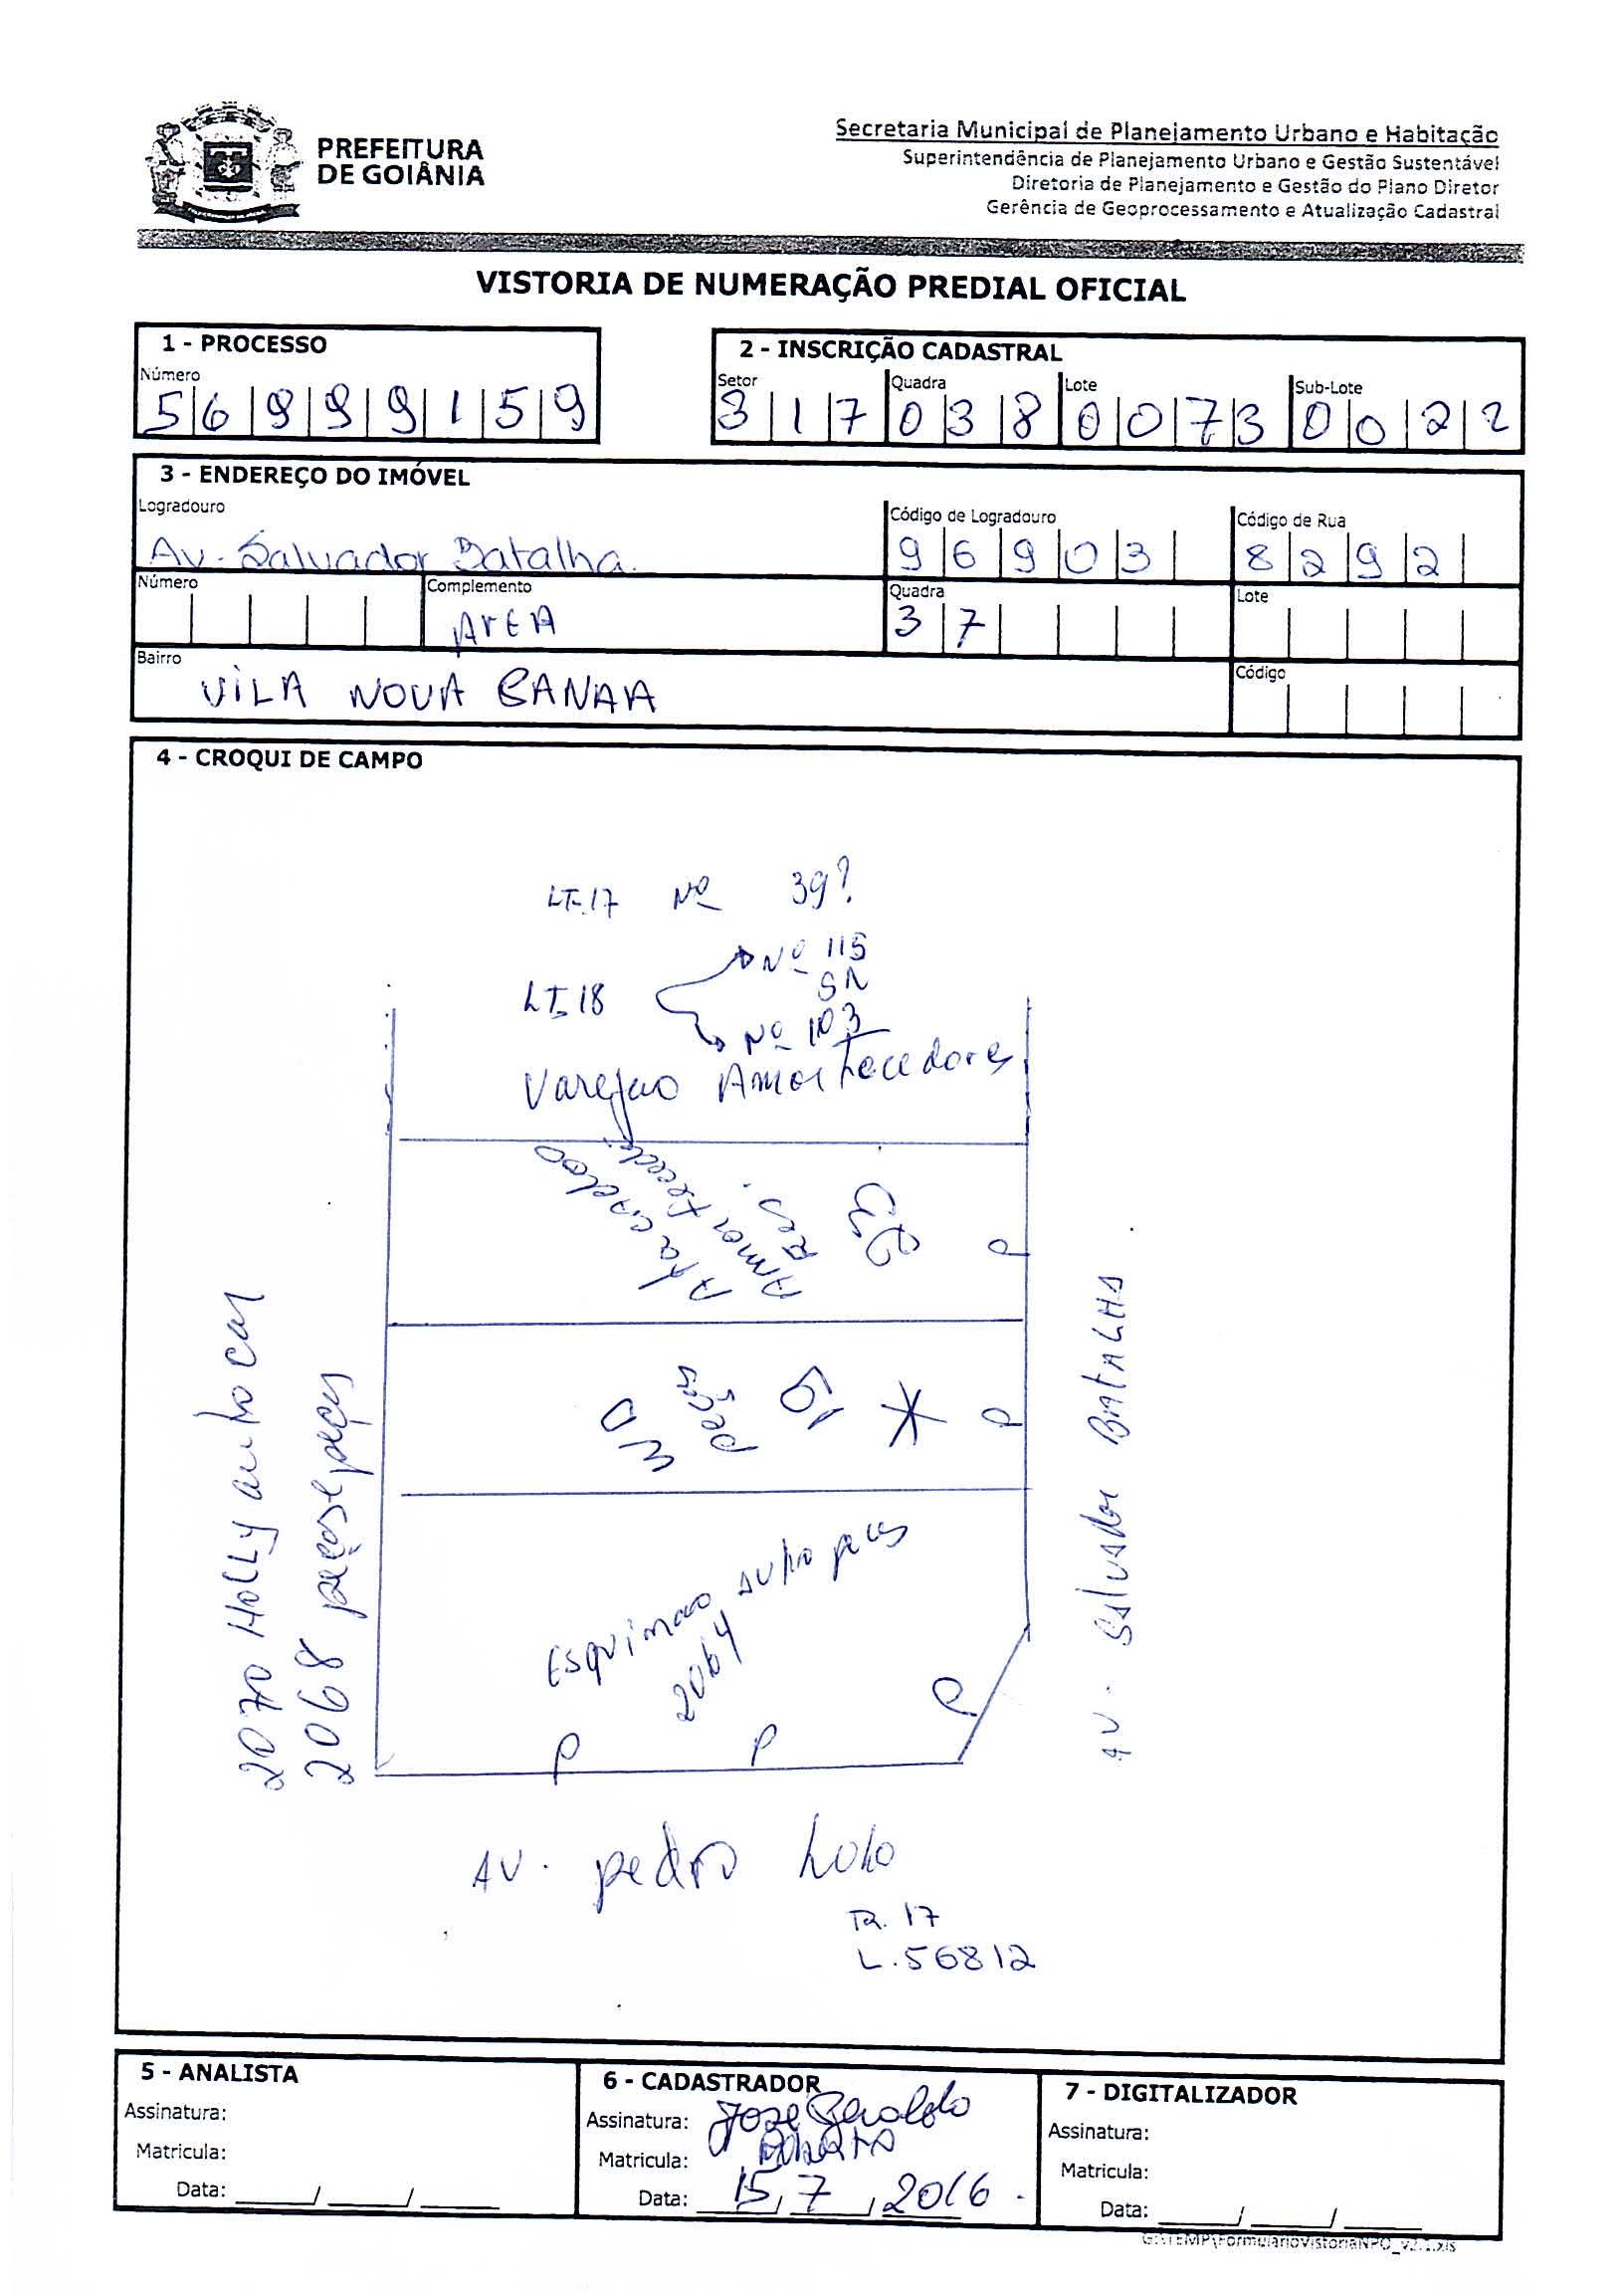 PREFEITURA
DE GOIÂNIA
Secretaria Municipal de Planejamento Urbano e Habitação
Superintendência de Planejamento Urbano e Gestão Sustentável
Diretoria de Planejamento e Gestão do Plano Diretor
Gerência de Geoprocessamento e Atualização Cadastral
VISTORIA DE NUMERAÇÃO PREDIAL OFICIAL
1 - PROCESSO
Número
5 6 9 9 9 1 5 9
2 - INSCRIÇÃO CADASTRAL
Setor Quadra Lote Sub-Lote
3 1 7 0 3 8 0 0 7 3 0 0 2 2
3 - ENDEREÇO DO IMÓVEL
Logradouro Código de Logradouro Código de Rua
Av. Salvador Batalha. 9 6 9 0 3 8 2 9 2
Número Complemento Quadra Lote
Area 3 7
Bairro Código
VILA NOVA CANAA
4 - CROQUI DE CAMPO
LT.17 Nº 39?
Nº 115
SN
LT.18
Nº 103
Varejao Amortecedores
Atacadao
Res.
P
WD
peças
51
P
Esquimao auto peças
2064
P
P P
2070 Holly auto car
2068
AV. Salvador BATALHA
AV. pedro
L.56812
5 - ANALISTA
Assinatura:
Matricula:
Data: ____/____/____
6 - CADASTRADOR
Assinatura: Jose Geraldo
Matricula:
Data: 15/7/2016
7 - DIGITALIZADOR
Assinatura:
Matricula:
Data: ____/____/____
G:\TEMP\FormularioVistoriaNPO_v2.1.xls